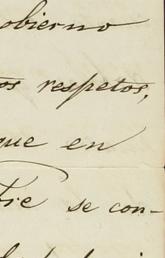 obierno
os respetos,
que en
tre se con-